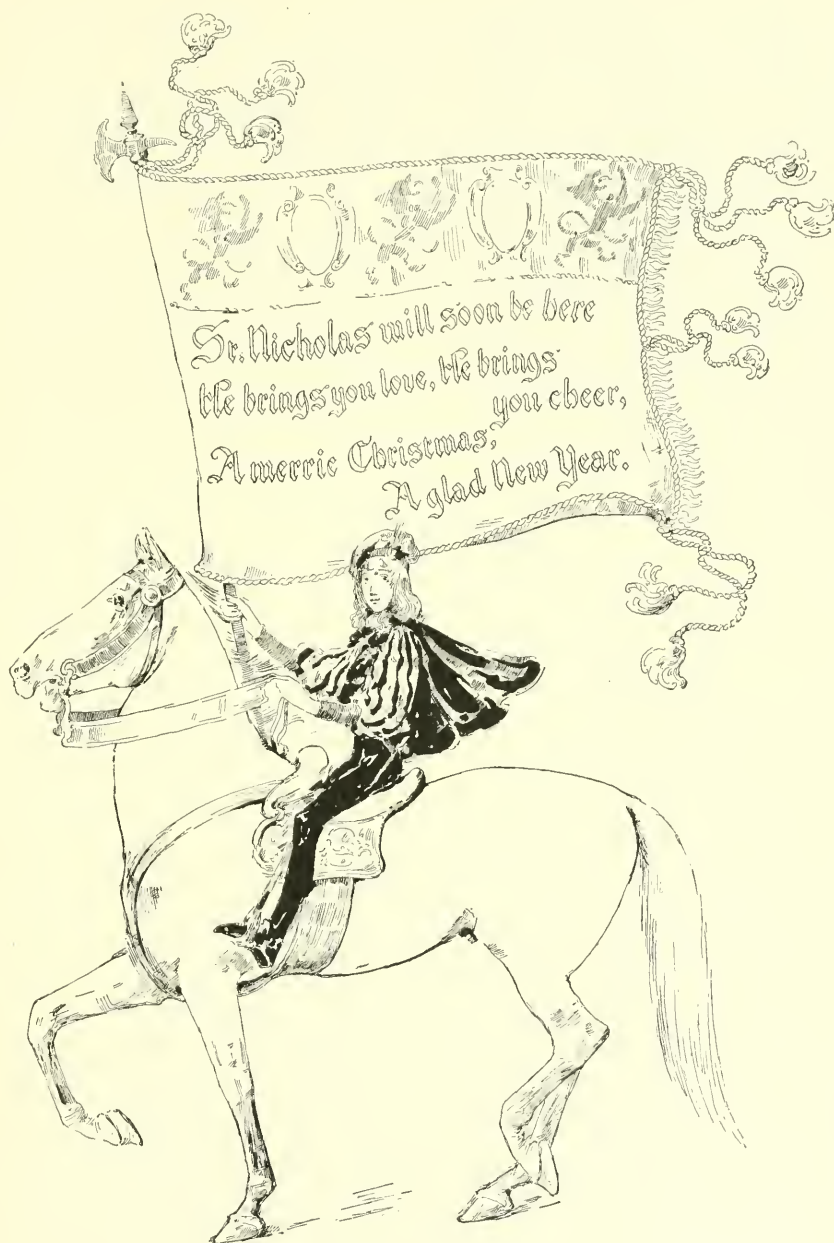 St. Nicholas will soon be here
He brings you love, He brings
you cheer,
A merrie Christmas,
A glad New Year.